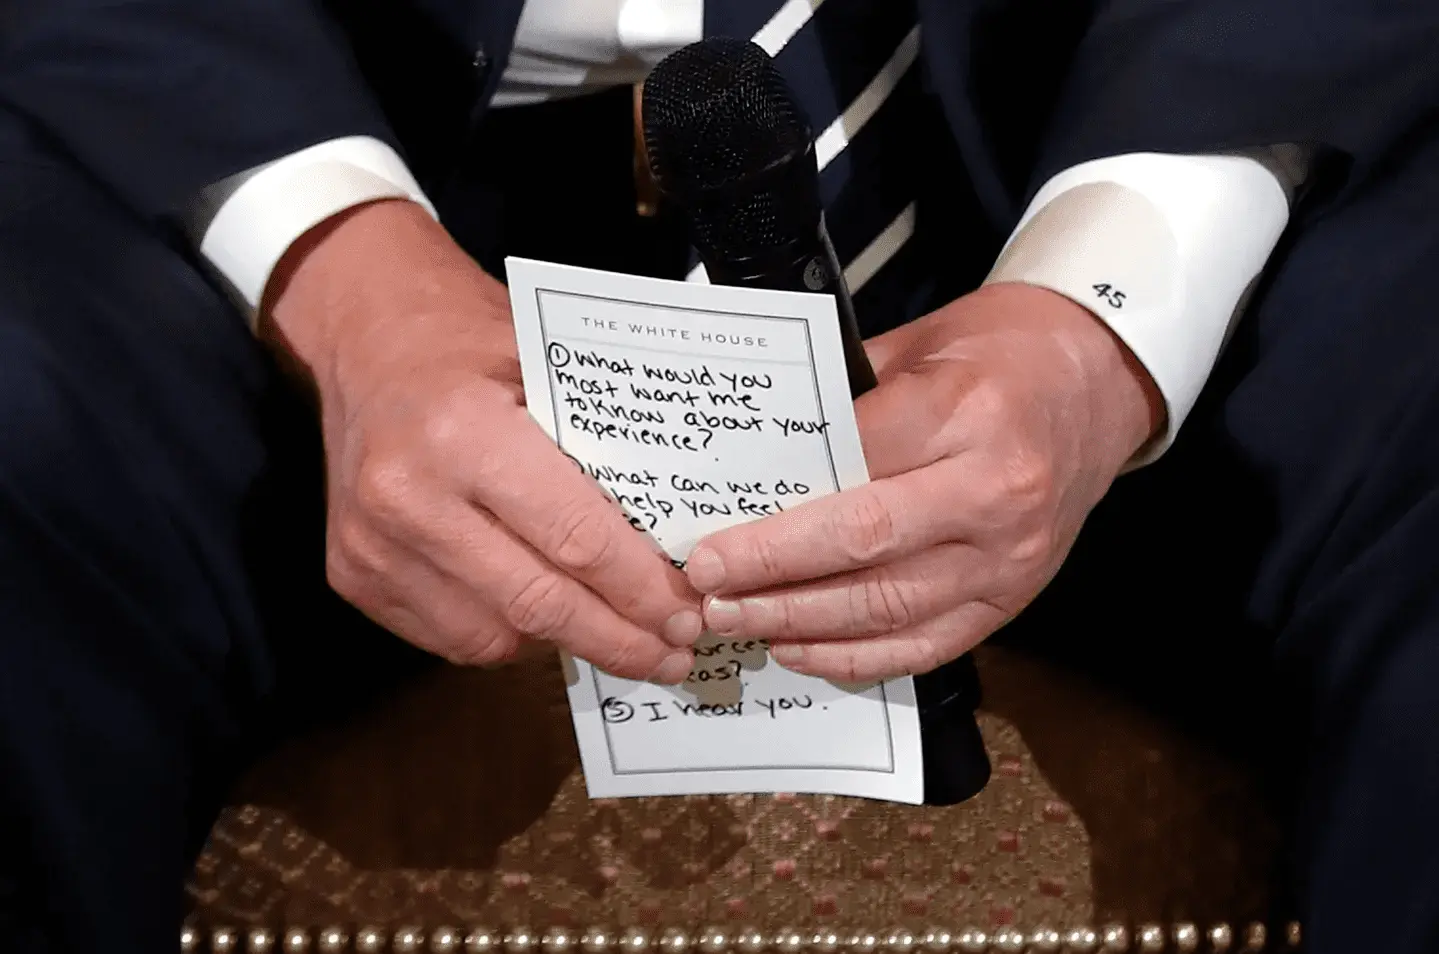 45
THE WHITE HOUSE
① What would you
most want me
to know about your
experience?
What can we do
help you feel
I hear you.